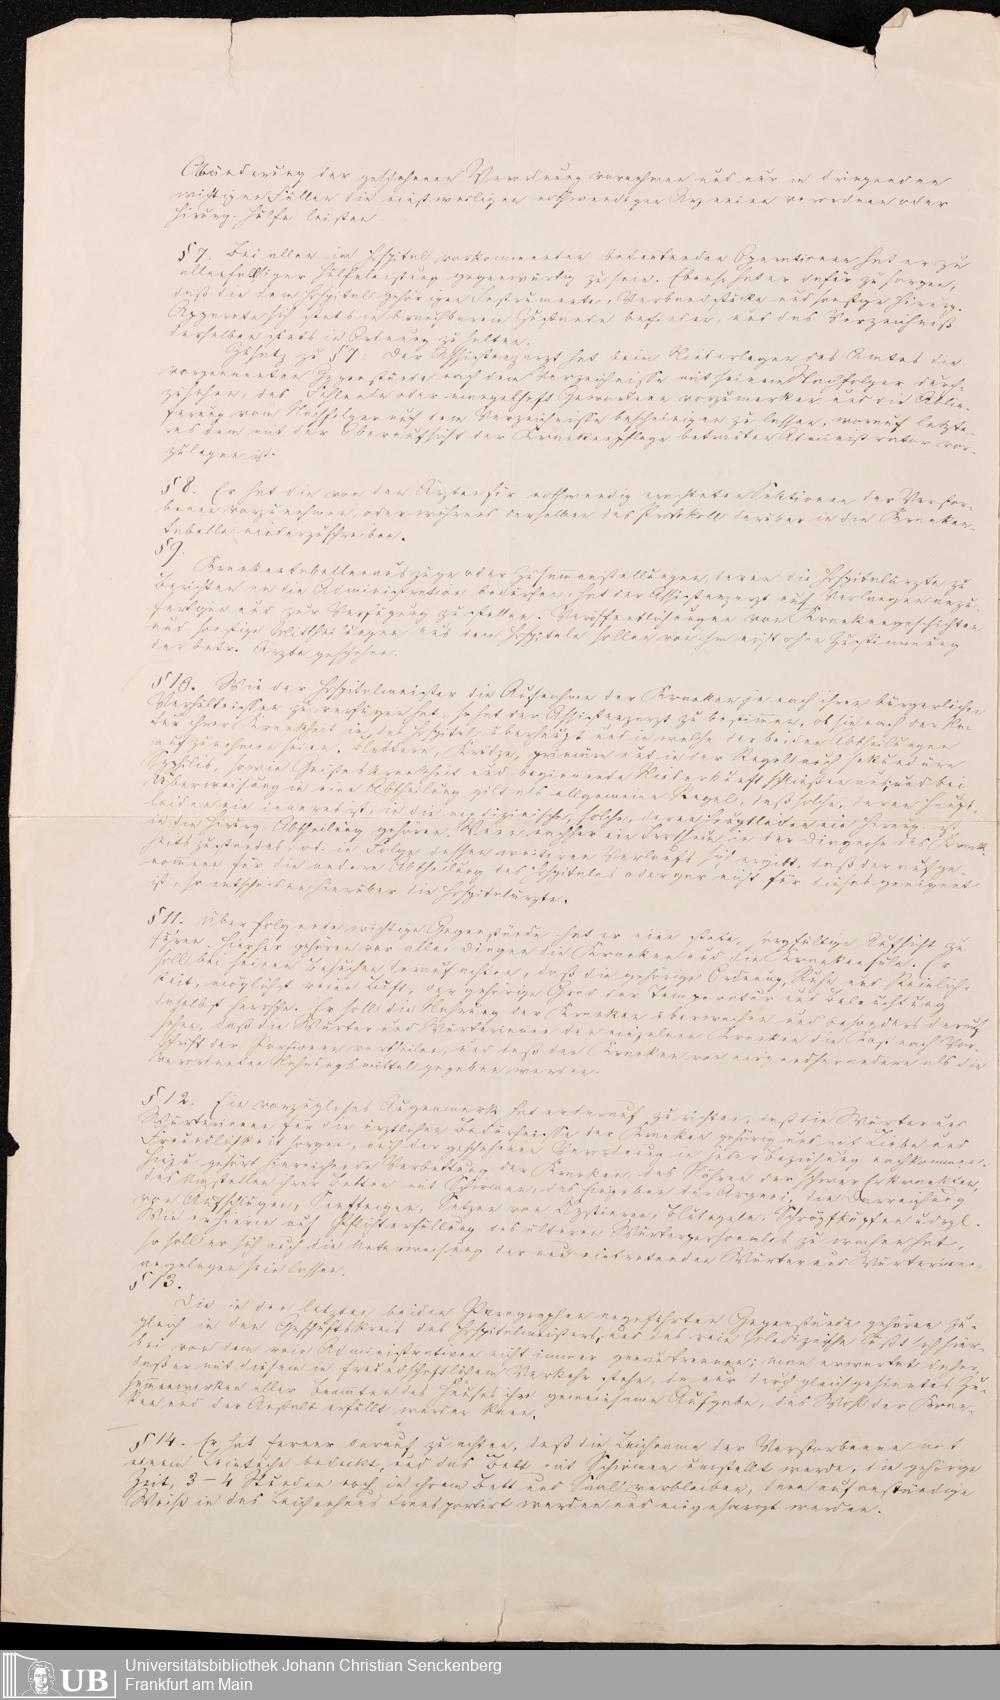 Abänderung der getroffenen Verordnung vornehmen und nur in dringenden
wichtigen Fällen die einstweiligen nothwendigen Arzneien verordnen oder
chirurg. Hülfe leisten.
§ 7. Bei allen im Hospital vorkommenden bedeutenden Operationen hat er zu
allenfallsiger Hülfeleistung gegenwärtig zu sein. Ebenso hat er dafür zu sorgen,
daß die dem Hospital gehörigen Instrumente, Verbandstücke und sonstige chirurg.
Apparate sich stets in brauchbarem Zustande befinden, und das Verzeichniß
derselben stets in Ordnung zu halten.
Zusatz zu § 7: Der Assistenzarzt hat beim Niederlegen des Amtes die
vorgenannten Gegenstände nach dem Verzeichnisse mit seinem Nachfolger durch-
zusehen, das Fehlende oder mangelhaft Gewordene vorzumerken und die Ablie-
ferung vom Nachfolger auf dem Verzeichnisse bescheinigen zu lassen, worauf letzte-
res dem mit der Oberaufsicht der Krankenpflege betrauten Administrator vor-
zulegen ist.
§ 8. Er hat die von den Ärzten für nothwendig erachteten Sektionen der Verstor-
benen vorzunehmen, oder während derselben das Protokoll darüber in die Kranken-
tabelle niederzuschreiben.
§ 9.
Krankentabellenauszüge oder Zusammenstellungen, deren die Hospitalärzte zu
Berichten an die Administration bedürfen, hat der Assistenzarzt auf Verlangen anzu-
fertigen und zur Verfügung zu stellen. Veröffentlichungen von Krankengeschichten
und sonstige Mittheilungen aus dem Hospitale sollen von ihm nicht ohne Zustimmung
der betr. Ärzte geschehen.
§ 10. Wie der Hospitalmeister die Aufnahme der Kranken je nach ihren bürgerlichen
Verhältnissen zu verfügen hat, so hat der Assistenzarzt zu bestimmen, ob sie nach der Na-
tur ihrer Krankheit in das Hospital überhaupt und in welche der beiden Abtheilungen
aufzunehmen seien. Blattern, Krätze, primäre und in der Regel auch sekundäre
Syphilis, sowie Geisteskrankheit und beginnende Niederkunft schließen aus; und bei
Überweisung in eine Abtheilung gilt als allgemeine Regel, daß solche, deren Haupt-
leiden ein inneres ist, in die medizinische, solche, deren Hauptleiden ein chirurg. ist
in die chirurg. Abtheilung gehören. Wenn nachher ein Irrthum in der Diagnose des Krank-
heitszustandes, od. in Folge dessen weiteren Verlaufs sich ergibt, daß der aufge-
nommene für die andere Abtheilung des Hospitales oder gar nicht für dieses geeignet
ist, so entscheiden hierüber die Hospitalärzte.
§ 11. Über folgende wichtige Gegenstände hat er eine stete, sorgfältige Aufsicht zu
führen. Hierher gehören vor allen Dingen die Kranken und die Krankensäle. Er
soll bei seinen Besuchen darauf achten, daß die gehörige Ordnung, Ruhe und Reinlich-
keit, möglichst reine Luft, der gehörige Grad der Temperatur und Beleuchtung
daselbst herrsche. Er soll die Nahrung der Kranken überwachen und besonders darauf
sehen, daß die Wärter und Wärterinnen den einzelnen Kranken die Kost nach Vor-
schrift der Portionen vertheilen, und daß den Kranken von niemandem andere als die
verordneten Nahrungsmittel gegeben werden.
§ 12. Ein vorzügliches Augenmerk hat er darauf zu richten, daß die Wärter und
Wärterinnen für die ärztlichen Bedürfnisse der Kranken gehörig und mit Liebe und
Freundlichkeit sorgen, auch der geschehenen Verordnung in jeder Beziehung nachkommen.
Hiezu gehört hinreichende Verbettung der Kranken, das Führen der schwer Erkrankten,
das Umstellen ihrer Betten mit Schirmen, das Eingeben der Arznei, die Darreichung
von Aufschlägen, Senfteigen, Setzen von Klystieren, Blutegeln, Schröpfköpfen u. dgl.
Wie er hierin auf Pflichterfüllung des älteren Wärterpersonales zu wachen hat,
so soll er sich auch die Unterweisung der neu eintretenden Wärter und Wärterinnen
angelegen sein lassen.
§ 13.
Die in den letzten beiden Paragraphen angeführten Gegenstände gehören zu-
gleich in den Geschäftskreis des Hospitalmeisters, und das rein Medizinische läßt sich hier-
bei von dem rein Administrativen nicht immer genau trennen; man erwartet daher,
daß er mit diesem in freundschaftlichem Verkehr stehe, da nur durch gleichgesinntes Zu-
sammenwirken aller Beamten des Hauses ihre gemeinsame Aufgabe, das Wohl der Kran-
ken und der Anstalt erfüllt werden kann.
§ 14. Er hat ferner darauf zu achten, daß die Leichname der Verstorbenen mit
einem Leintuche bedeckt, und das Bett mit Schirmen umstellt werde, die gehörige
Zeit, 3 – 4 Stunden noch in ihrem Bett und Saal verbleiben, dann auf anständige
Weise in das Leichenhaus transportirt werden und eingesargt werden.
UB
Universitätsbibliothek Johann Christian Senckenberg
Frankfurt am Main